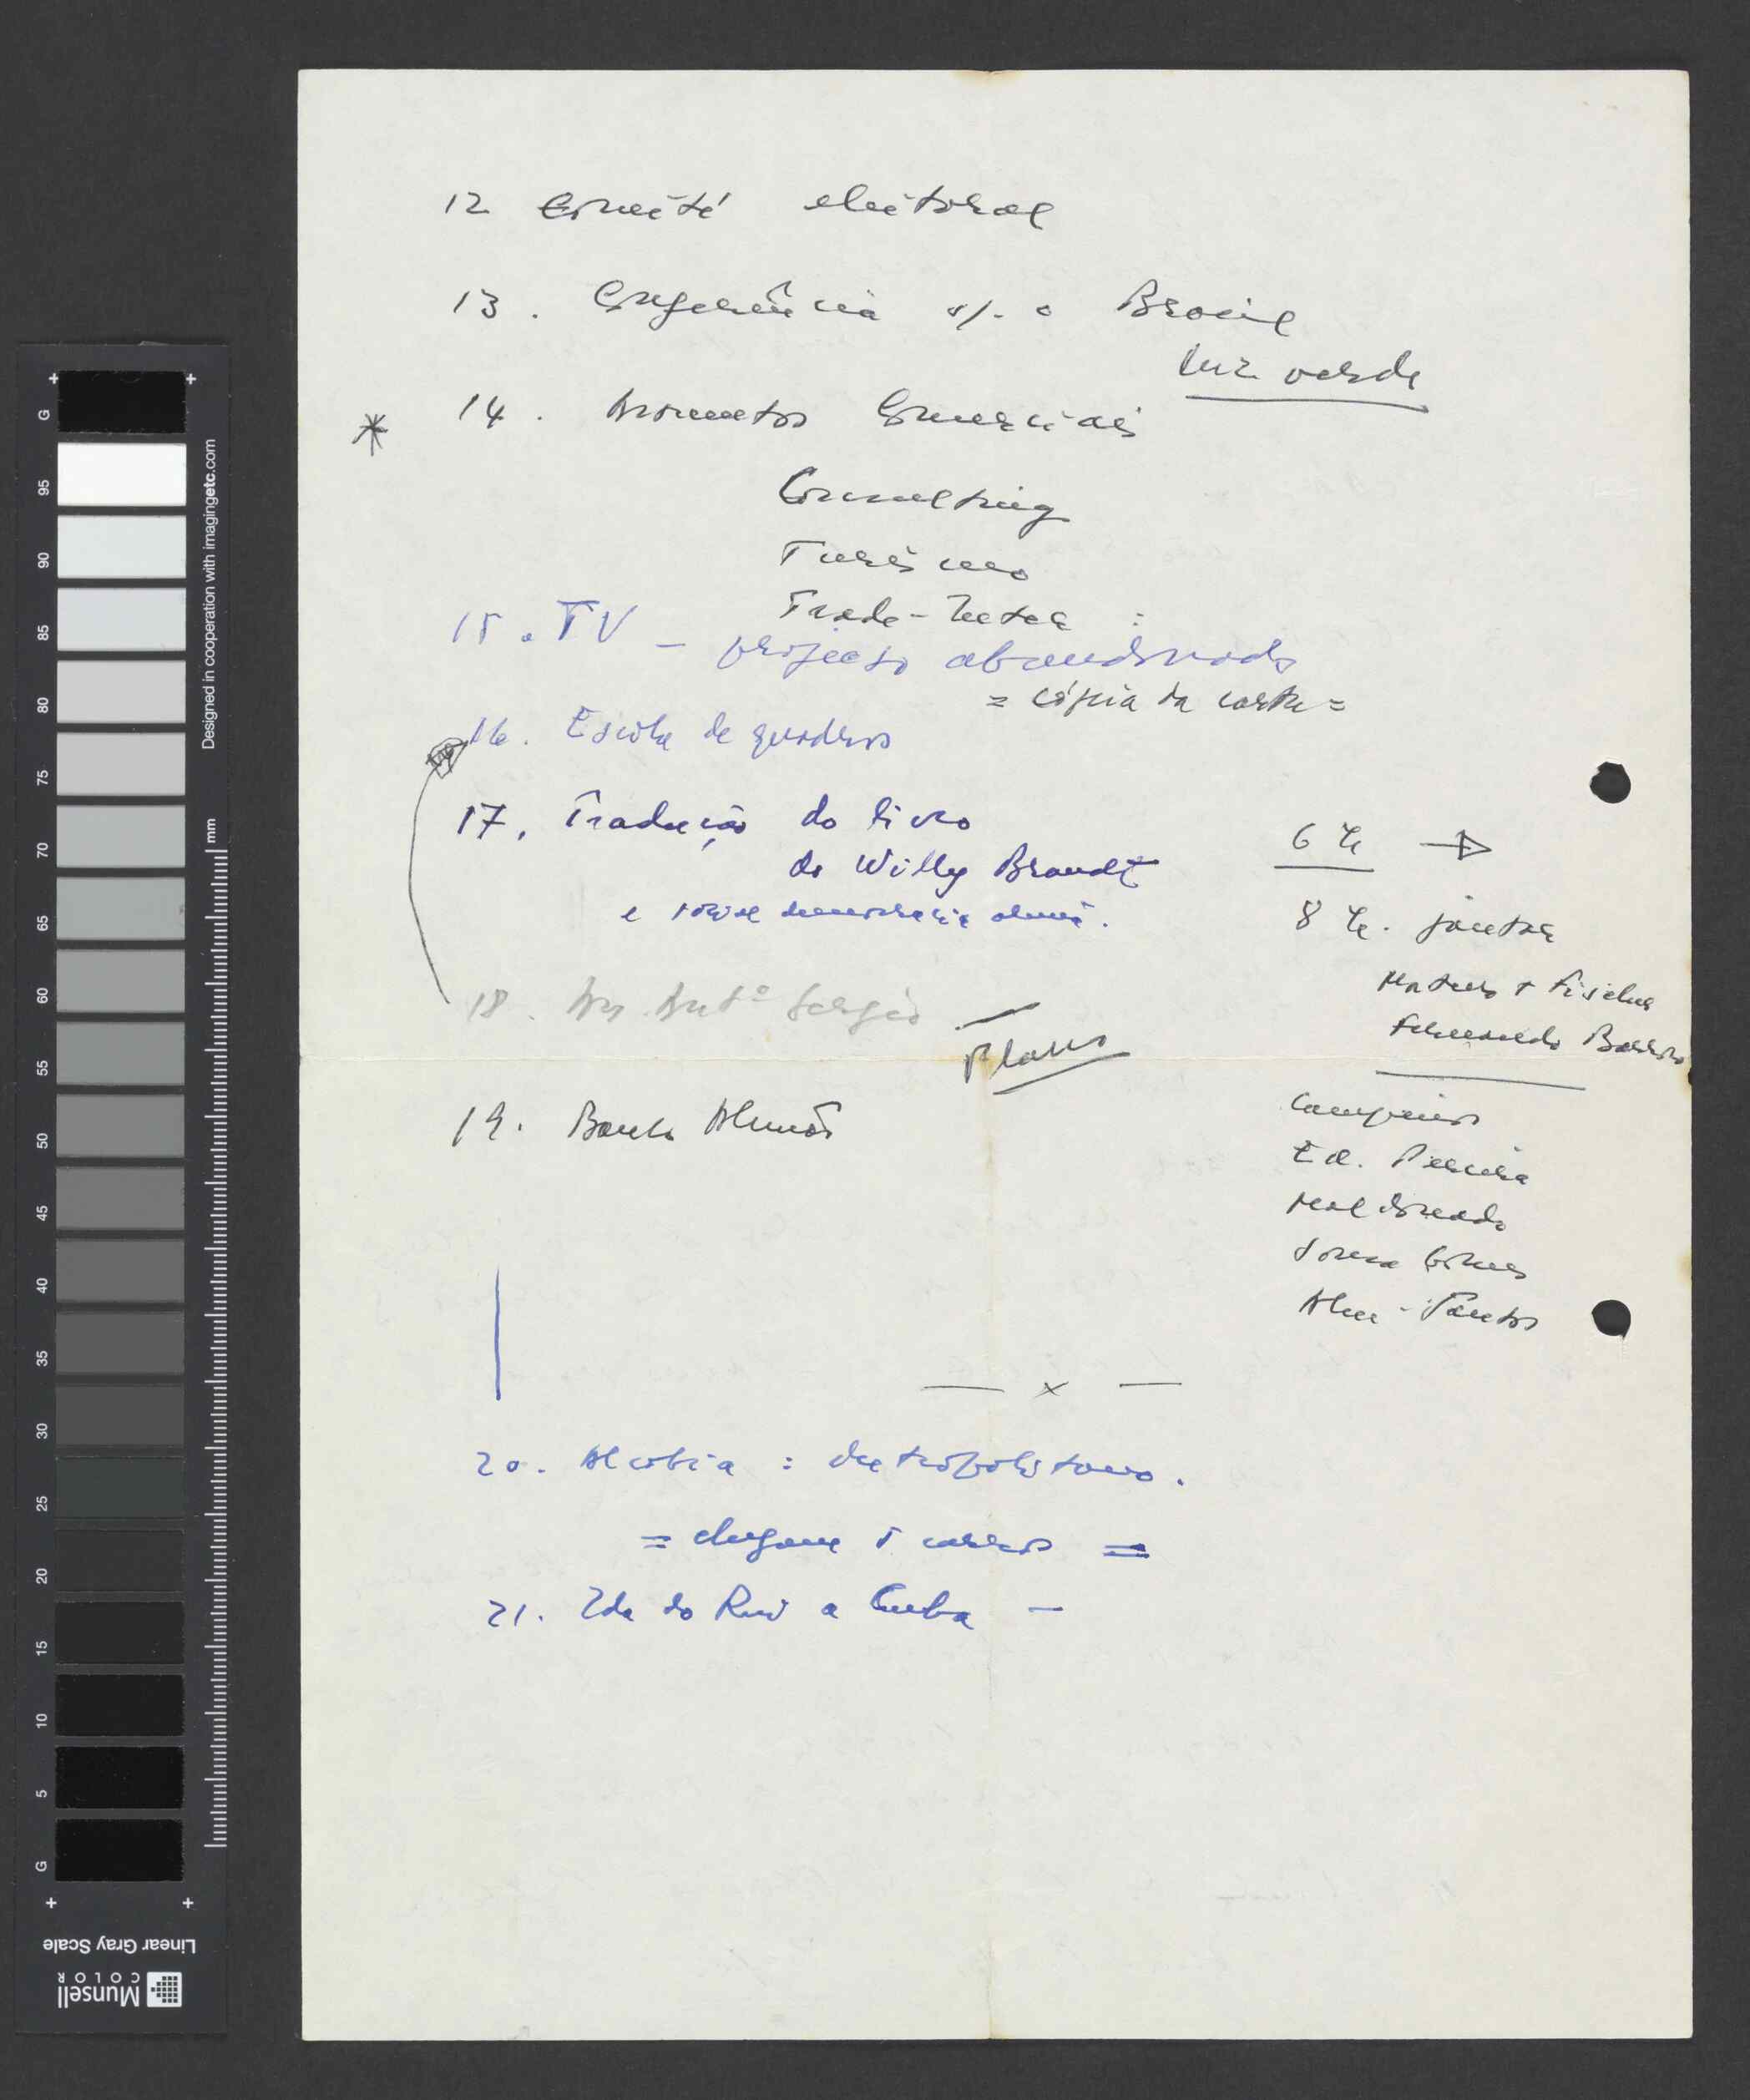 12 Comité eleitoral
13. Conferência s/. o Brasil
luz verde
14. Assuntos Comerciais
Consulting
Turismo
Trade-Inter :
15. TV – projecto abandonado
= cópia da carta =
16. Escola de quadros
17. Tradução do livro
do Willy Brandt
e social democracia alemã.
18. Antº Sergio
Plano
19. Banco Alemão
— x —
20. Alcobia : Metropolitano.
= chegam 5 carros =
21. Ida do Rui a Cuba –
6 h →
8 h. jantar
Mateus + Fischer
Fernando Barroso
Campinos
Ed. Pereira
Maldonado
Sousa Gomes
Alm. Santos
G
95
90
85
80
75
70
65
60
55
50
45
40
35
30
25
20
15
10
5
G
mm
Designed in cooperation with imagingetc.com
Linear Gray Scale
Munsell
COLOR